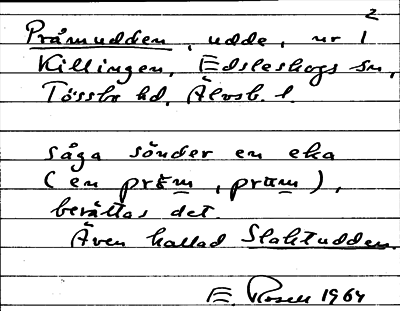 2
Pråmudden, udde, nr 1
Killingen, Edsleskogs sn,
Tössbo hd, Älvsb. l.
såga sönder en eka
(en pråm, pråm),
berättas det.
Även kallad Slaktudden.
E. Rosell 1964